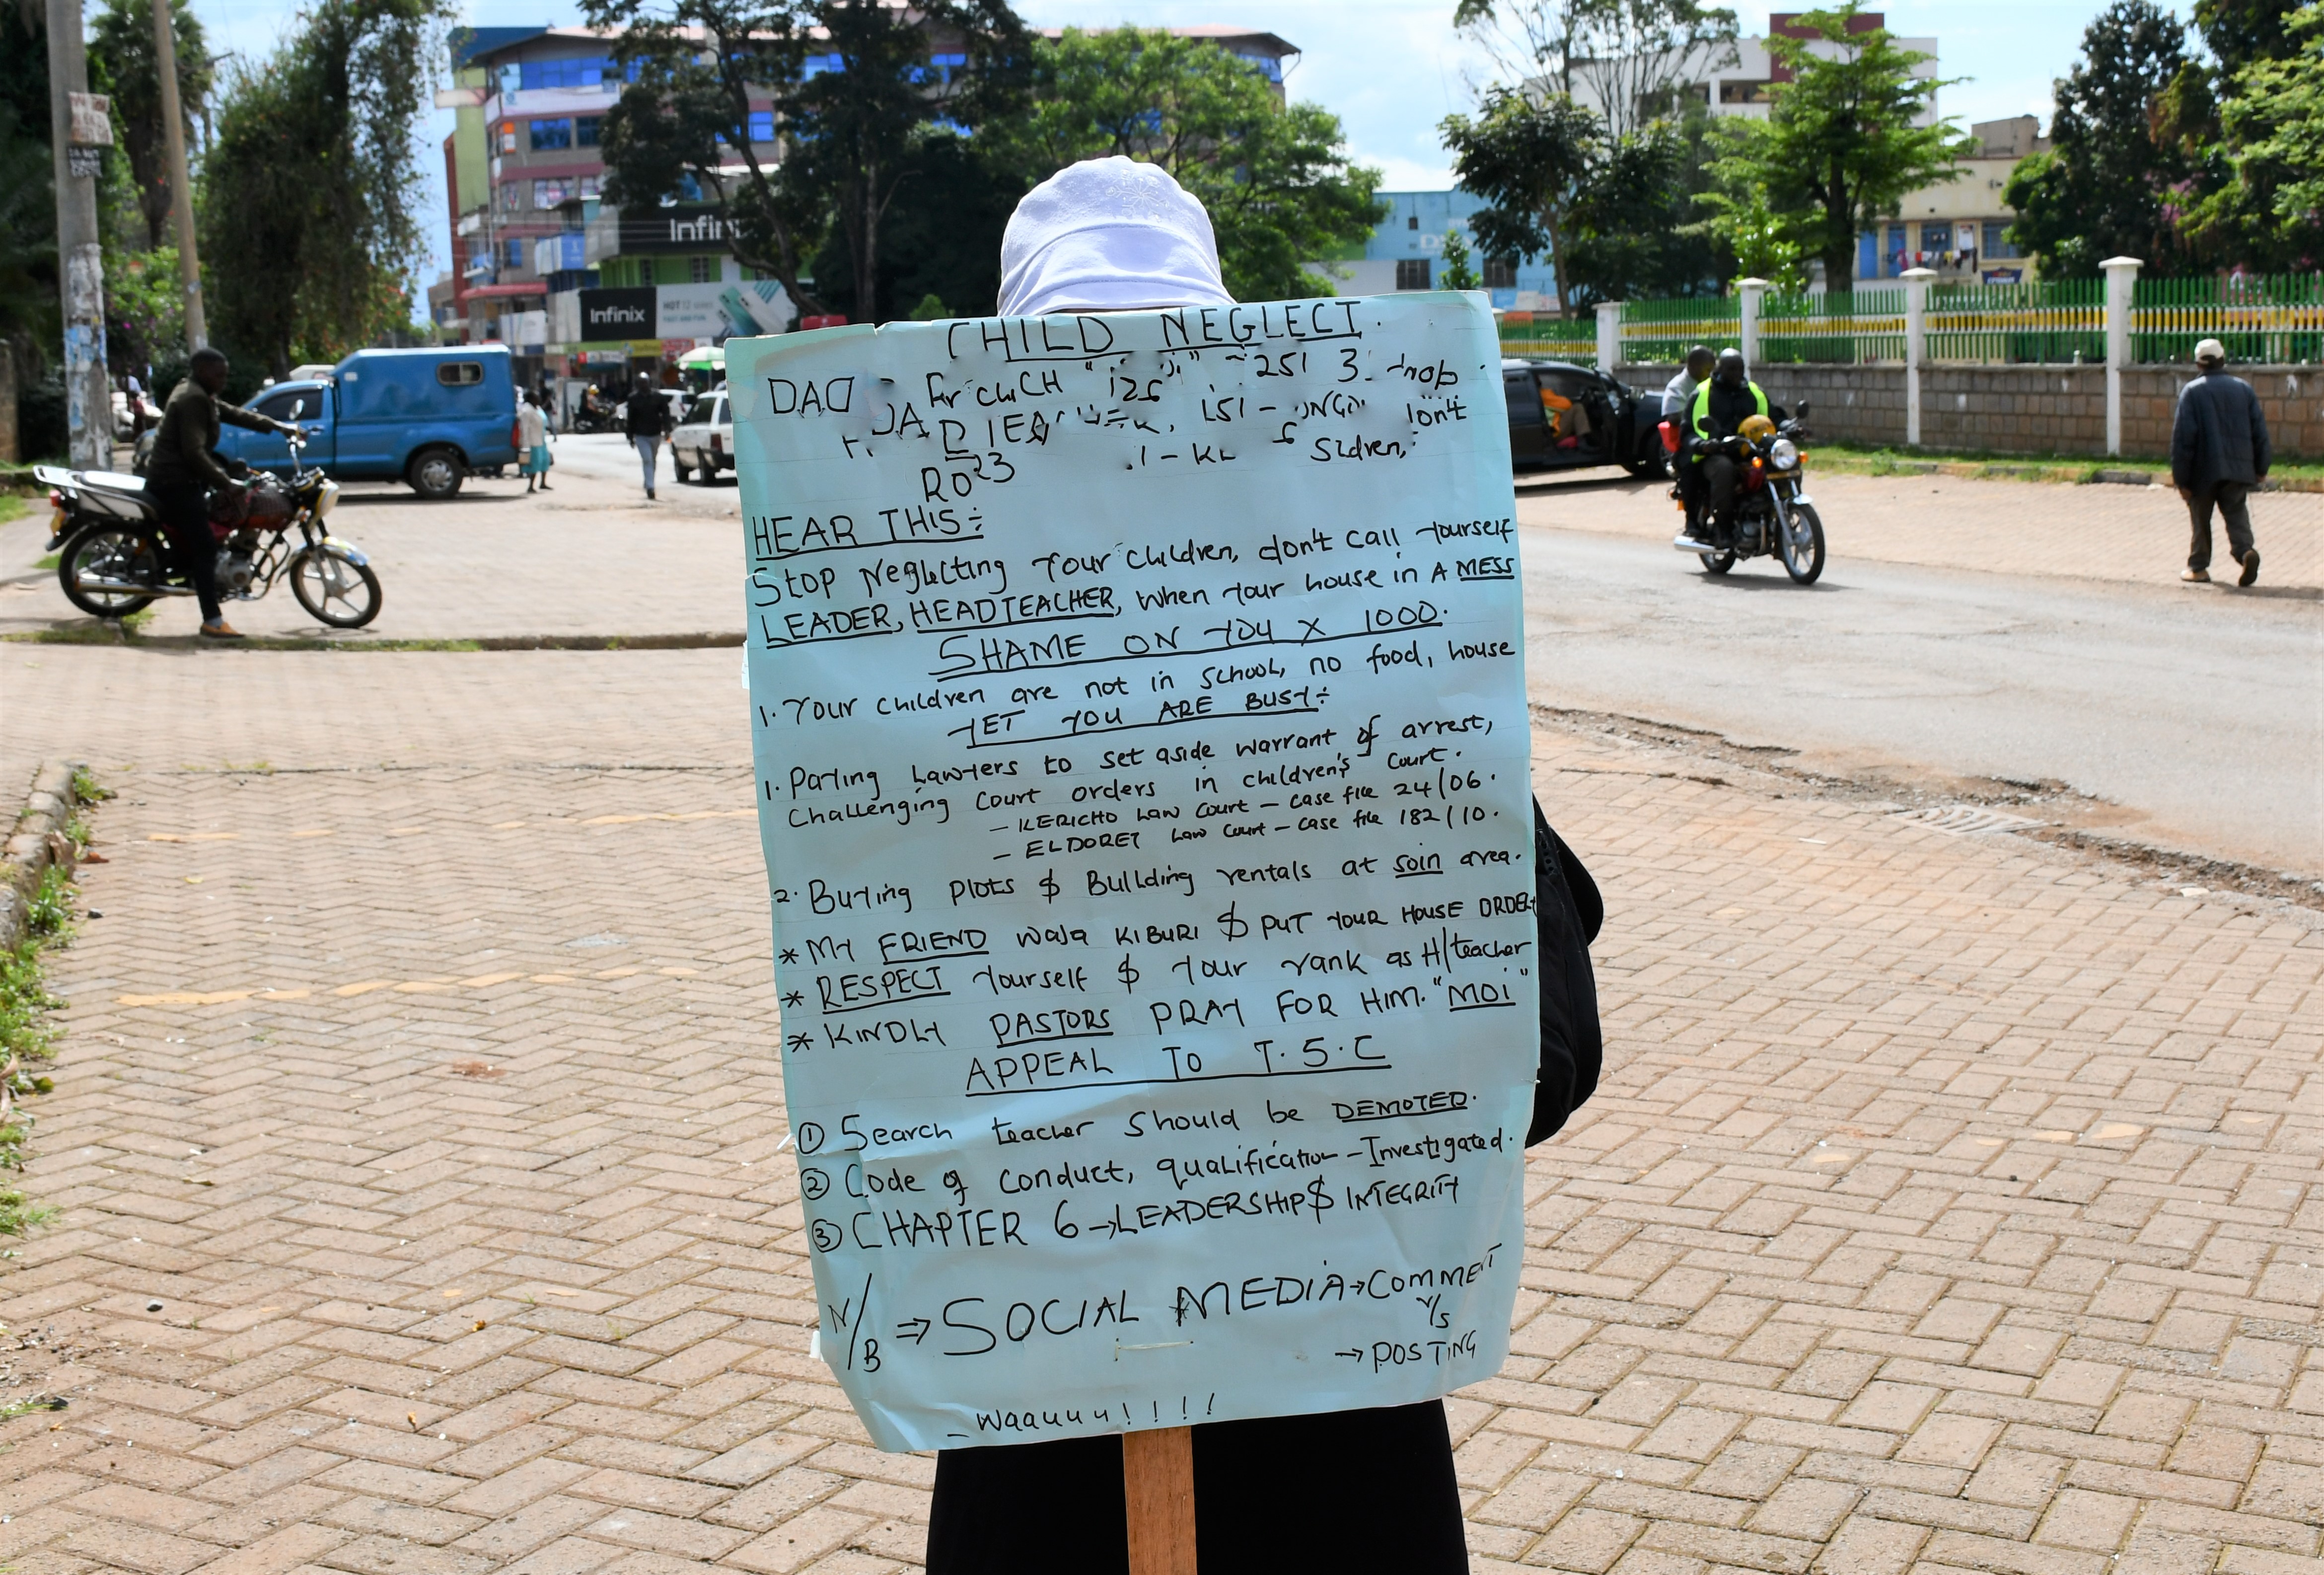 Infinix
Infinix
HOT 12
CHILD NEGLECT.
DAD
HEAR THIS:
Stop Neglecting Your Children, don't call Yourself
LEADER, HEADTEACHER, When Your house in A MESS
SHAME ON YOU X 1000.
1. Your children are not in School, no food, house
YET YOU ARE BUSY:
1. Paying Lawyers to set aside warrant of arrest,
Challenging Court orders in children's Court.
- KERICHO Law Court - case file 24/06.
- ELDORET Law Court - case file 182/10.
2. Buying Plots $ Buillding rentals at soin area.
* MY FRIEND Waja KIBURI $ PUT YOUR HOUSE ORDER
* RESPECT Yourself $ Your rank as H/teacher
* KINDLY PASTORS PRAY FOR HIM. "MOI"
APPEAL TO T.S.C
① Search teacher Should be DEMOTED.
② Code of conduct, qualification - Investigated.
③ CHAPTER 6 → LEADERSHIP $ INTEGRITY
N/B ⇒ SOCIAL MEDIA → COMMENT
V/S
→ POSTING
- Waauuu!!!!